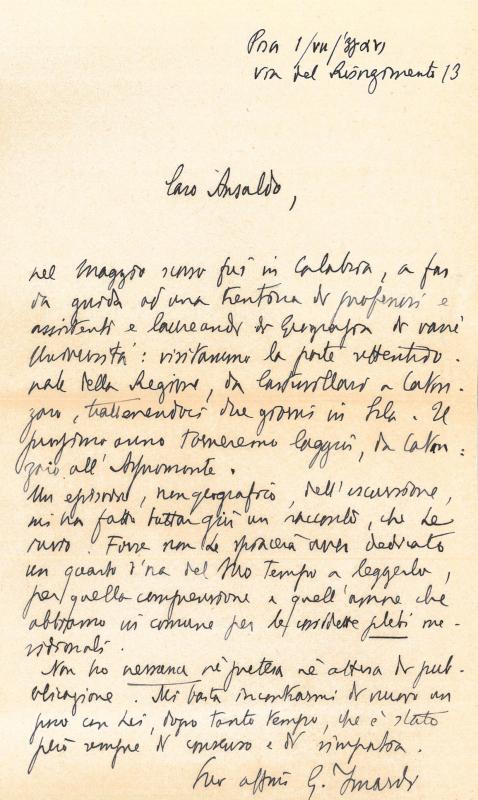 Pisa 1/VII/
via del Risorgimento 13
Caro Ansaldo,
nel Maggio scorso fui in Calabria, a far
da guida ad una trentina di professori e
assistenti e laureandi di Geografia di varie
Università: visitammo la parte settentrio-
nale della Regione, da Castrovillari a Catan-
zaro, trattenendoci due giorni in Sila. Il
prossimo anno torneremo laggiù, da Catan-
zaro all'Aspromonte.
Un episodio, non geografico, dell'escursione,
mi ha fatto buttar giù un racconto, che Le
invio. Forse non Le spiacerà aver dedicato
un quarto d'ora del Suo tempo a leggerlo,
per quella comprensione e quell'amore che
abbiamo in comune per le cosidette plebi me-
ridionali.
Non ho nessuna nè pretesa nè attesa di pub-
blicazione. Mi basta incontrarmi di nuovo un
poco con Lei, dopo tanto tempo, che è stato
però sempre di consenso e di simpatia.
Suo affmo G.